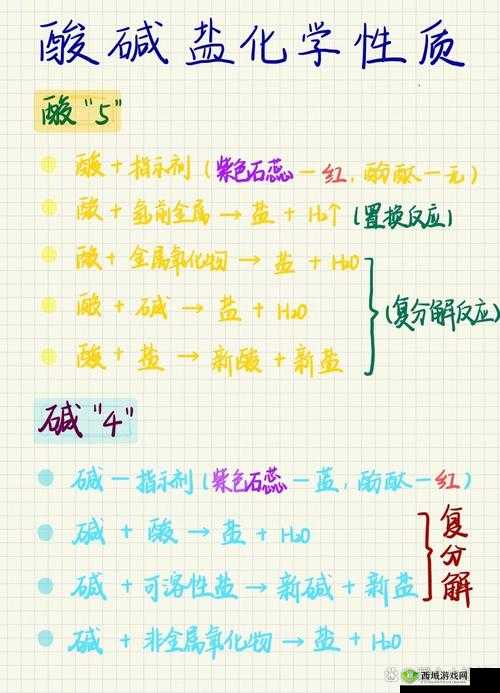 酸碱盐化学性质
酸"5"
酸 + 指示剂 (紫色石蕊—红, 酚酞—无)
酸 + 氢前金属 → 盐 + H₂↑ (置换反应)
酸 + 金属氧化物 → 盐 + H₂O
酸 + 碱 → 盐 + H₂O
(复分解反应)
酸 + 盐 → 新酸 + 新盐
碱"4"
碱 — 指示剂 (紫色石蕊—蓝, 酚酞—红)
碱 + 酸 → 盐 + H₂O
复分解
碱 + 可溶性盐 → 新碱 + 新盐
碱 + 非金属氧化物 → 盐 + H₂O
西域游戏网